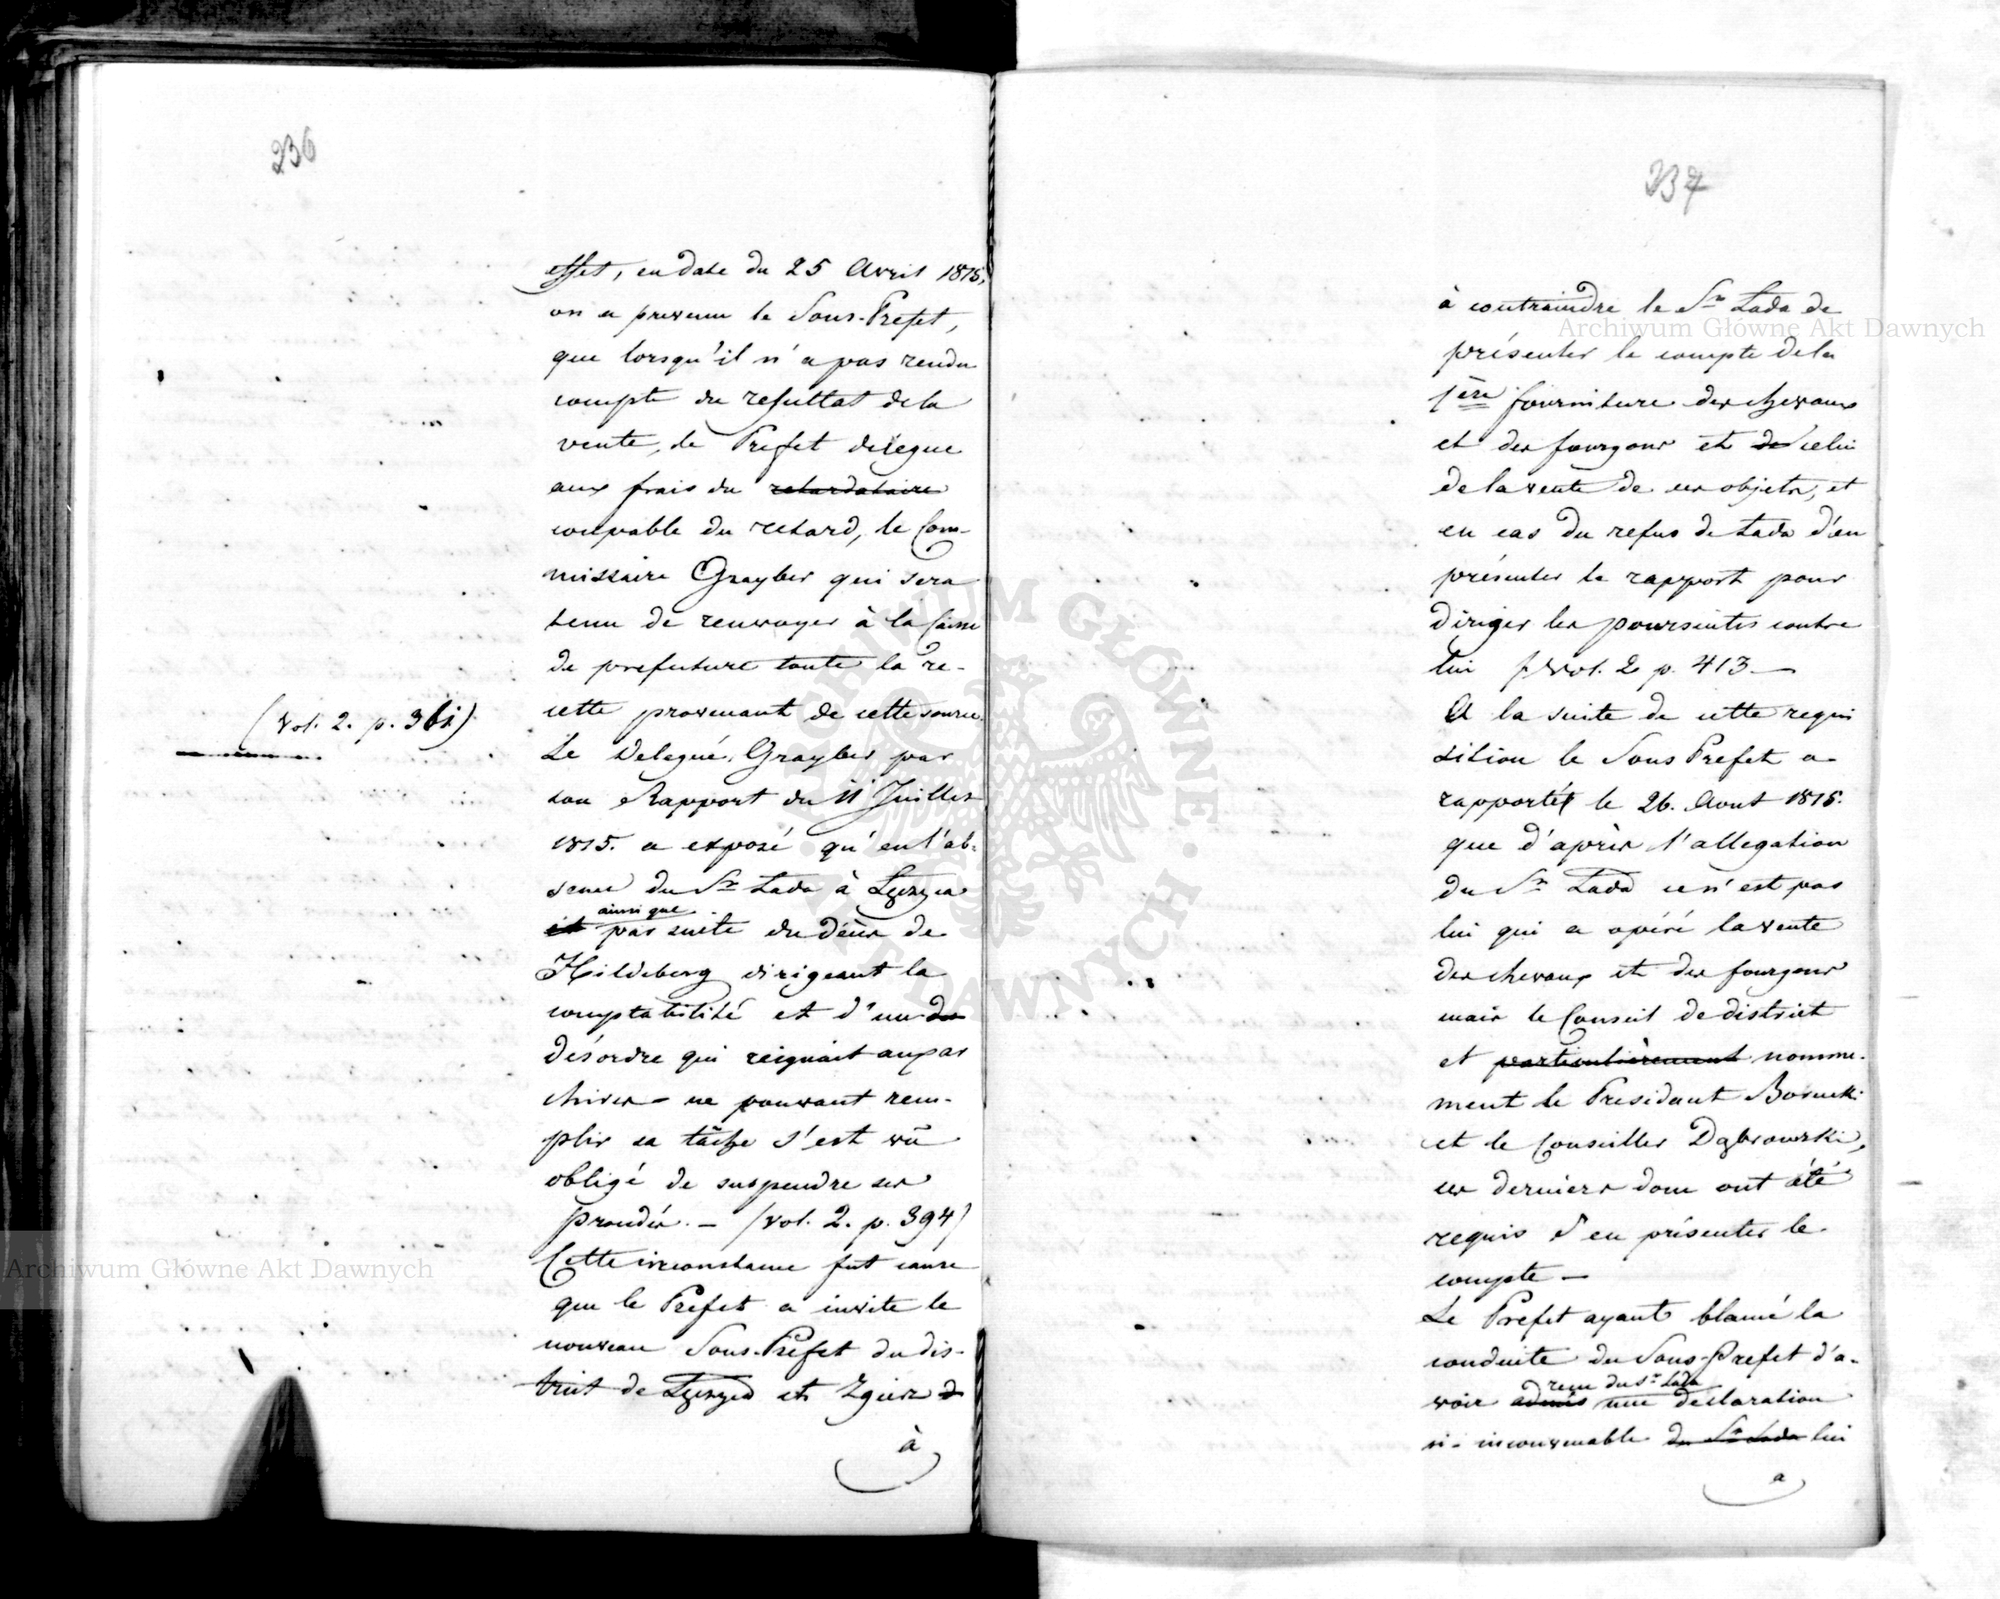 236
effet, en date du 25 Avril 1815,
on a prevenu le Sous-Prefet,
que lorsqu'il n'a pas rendu
compte du resultat dela
vente, le Prefet delegue
aux frais du retardataire
coupable du retard, le Com-
missaire Grayber qui sera
tenu de renvoyer à la Caisse
de prefecture toute la re-
cette provenant de cette source
(vol. 2. p. 361)
Le Delegué, Grayber par
son Rapport du 11 Juillet
1815. a exposé qu'en l'ab-
sence du Sr Lada à Łęczyca
et ainsi que par suite du décès de
Hildeberg dirigeant la
comptabilité et d'un de
désordre qui reignait aux ar
chives - ne pouvant rem-
plir sa tâche s'est vû
obligé de suspendre ses
procedés. - (vol. 2. p. 394)
Cette circonstance fut cause
que le Prefet a invite le
nouveau Sous-Prefet du dis-
trict de Łęczyca et Zgierz d
à
237
à contraindre le Sr Lada de
présenter le compte dela
1ère fourniture des chevaux
et des fourgons et de celui
dela vente de ces objets, et
en cas du refus de Lada d'en
présenter le rapport pour
diriger les poursuites contre
lui / vol. 2 p. 413 —
A la suite de cette requi
sition le Sous Prefet a
rapporté le 26. Aout 1815.
que d'après l'allegation
du Sr Lada ce n'est pas
lui qui a opéré la vente
des chevaux et des fourgons
mais le Conseil de district
et particulièrement nomme-
ment le President
et le Conseiller Dąbrowski,
ces derniers donc ont été
requis d'en présenter le
compte —
Le Prefet ayant blamé la
conduite du Sous-Prefet d'a-
voir admis recu du Sr Lada une declaration
si inconvenable du Sr Lada lui
a
Archiwum Główne Akt Dawnych
Archiwum Główne Akt Dawnych
ARCHIWUM GŁÓWNE AKT DAWNYCH